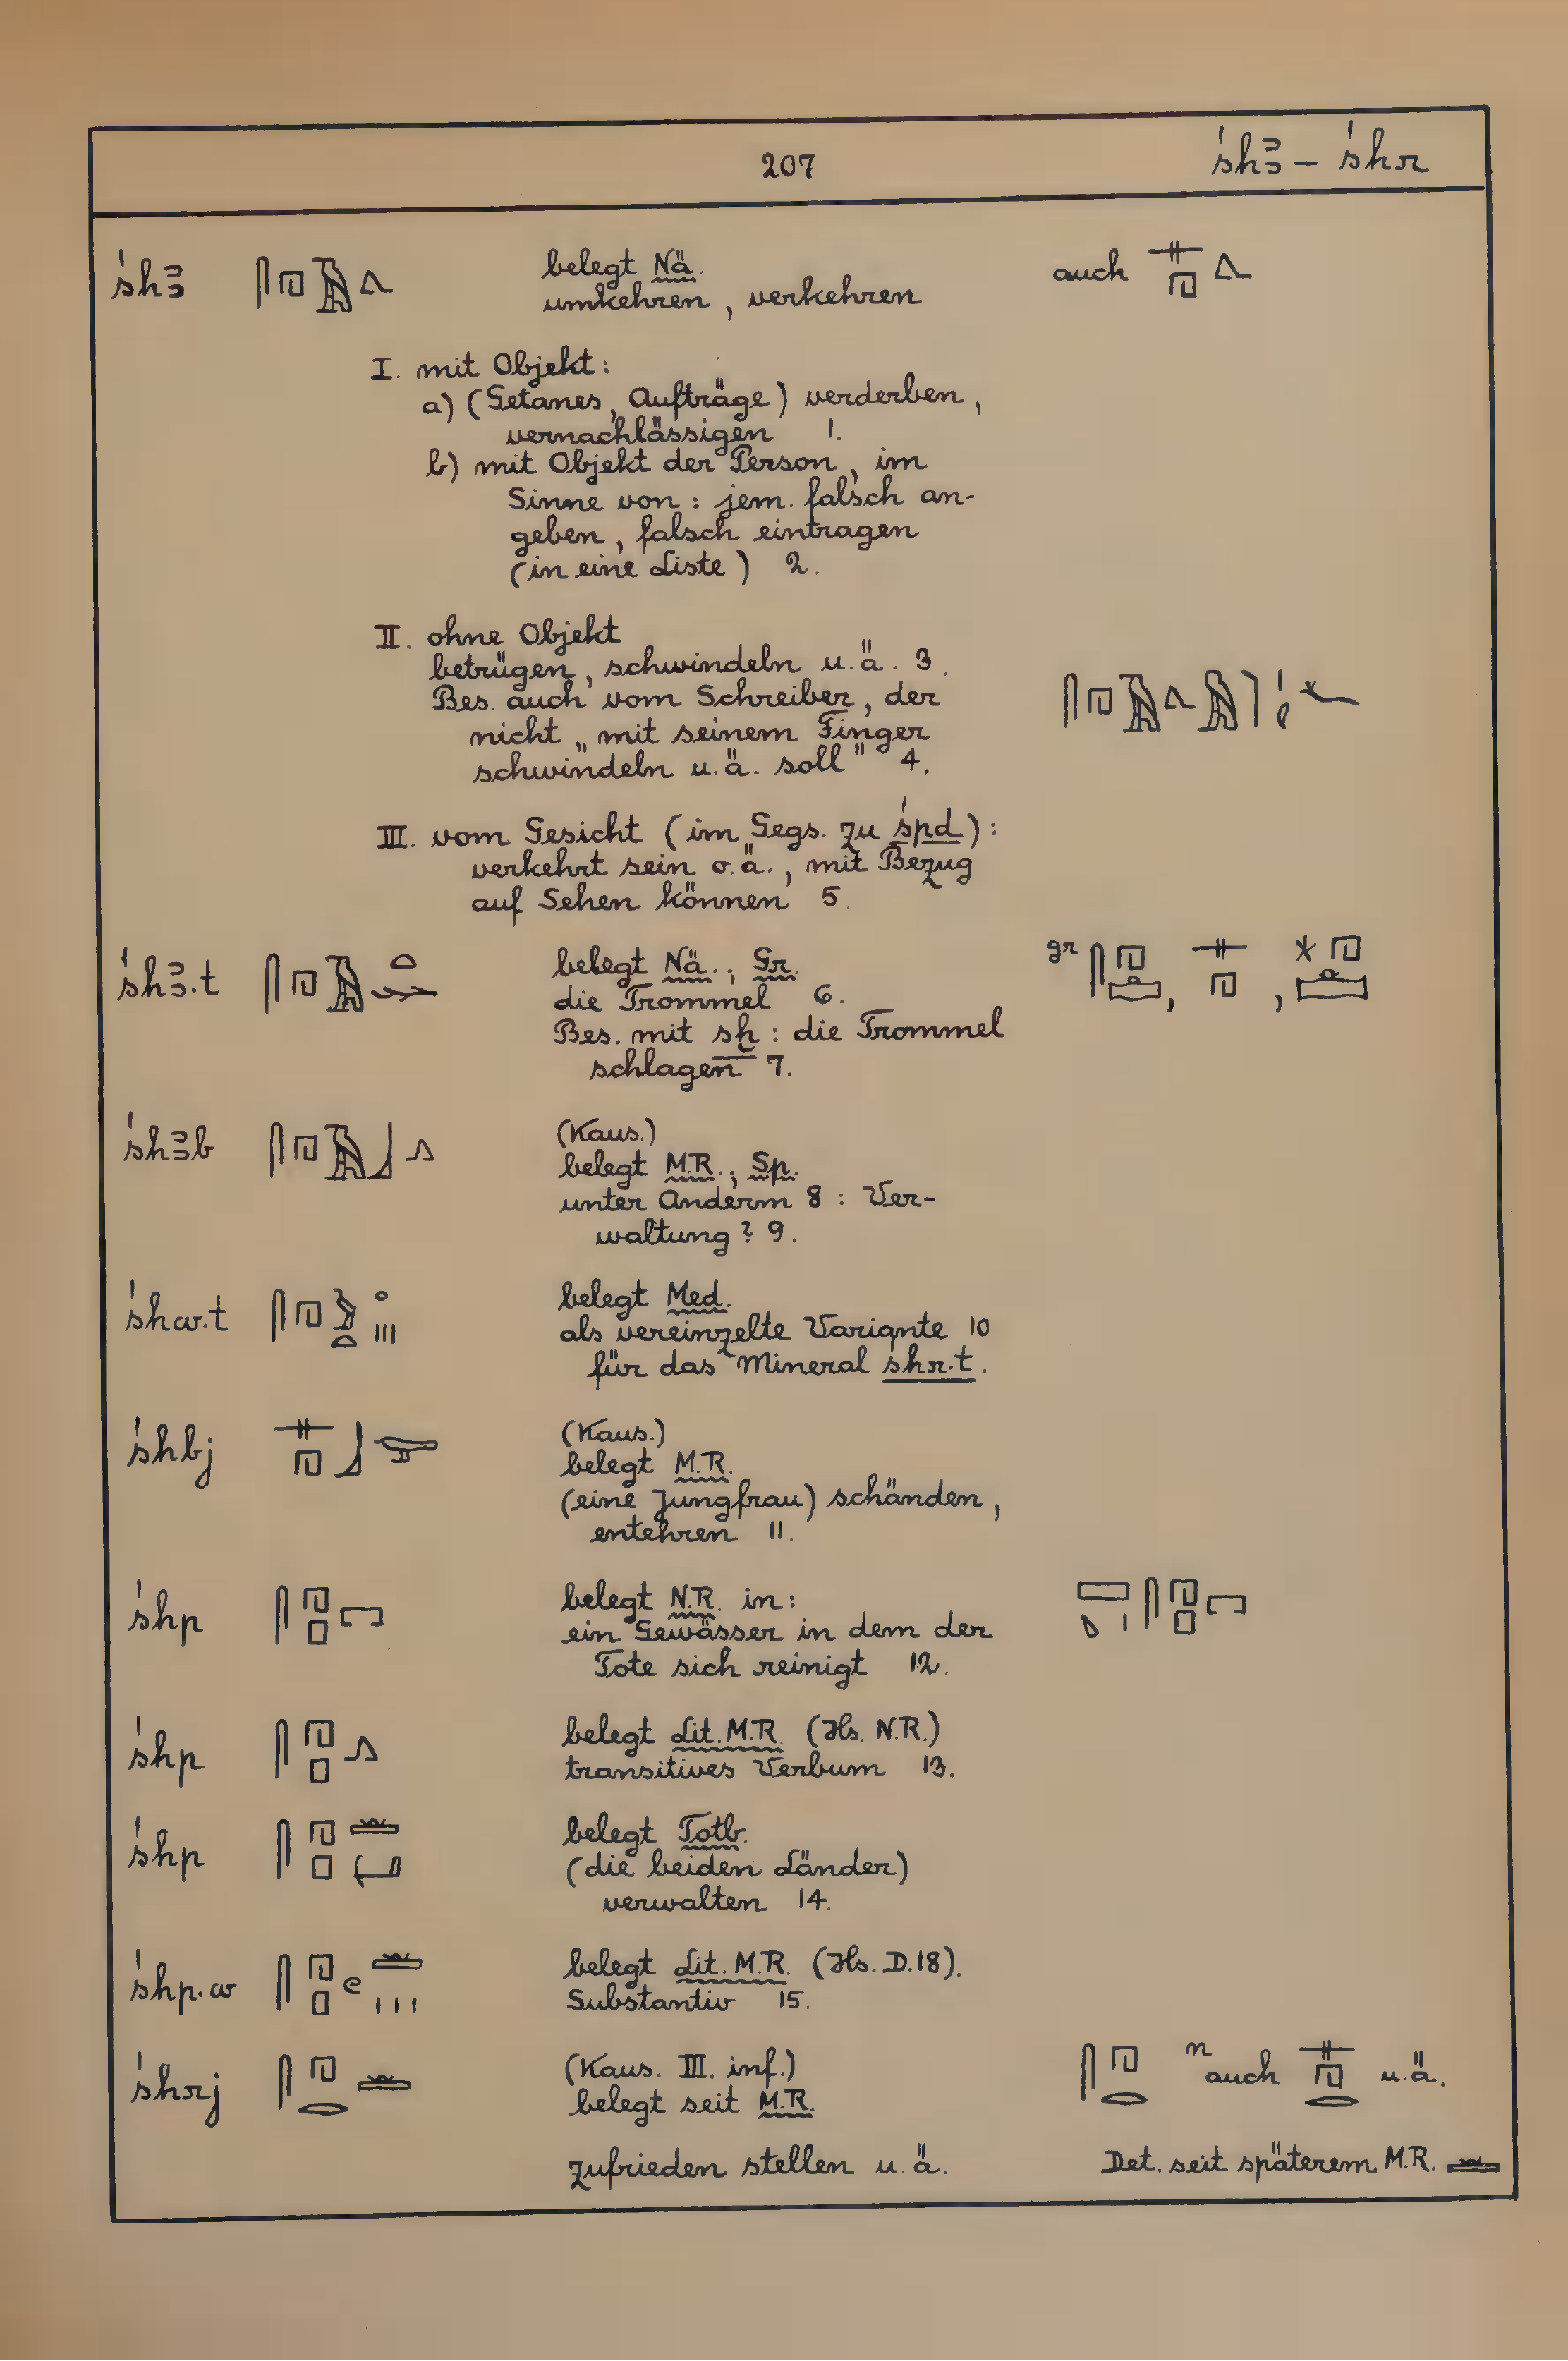 207 śhꜣ – śhr
śhꜣ belegt Nä. auch
umkehren, verkehren
I. mit Objekt:
a) (Getanes, Aufträge) verderben,
vernachlässigen 1.
b) mit Objekt der Person, im
Sinne von: jem. falsch an-
geben, falsch eintragen
(in eine Liste) 2.
II. ohne Objekt
betrügen, schwindeln u.ä. 3.
Bes. auch vom Schreiber, der
nicht „mit seinem Finger
schwindeln u.ä. soll" 4.
III. vom Gesicht (im Gegs. zu śpd):
verkehrt sein o.ä., mit Bezug
auf Sehen können 5.
śhꜣ.t belegt Nä.; Gr. gr
die Trommel 6.
Bes. mit sḫ: die Trommel
schlagen 7.
śhꜣb (Kaus.)
belegt M.R.; Sp.
unter Anderm 8: Ver-
waltung? 9.
śhw.t belegt Med.
als vereinzelte Variante 10
für das Mineral śhr.t.
śhbj (Kaus.)
belegt M.R.
(eine Jungfrau) schänden,
entehren 11.
śhp belegt N.R. in:
ein Gewässer in dem der
Tote sich reinigt 12.
śhp belegt Lit. M.R. (Hs. N.R.)
transitives Verbum 13.
śhp belegt Totb.
(die beiden Länder)
verwalten 14.
śhp.w belegt Lit. M.R. (Hs. D.18).
Substantiv 15.
śhrj (Kaus. III. inf.) n auch u.ä.
belegt seit M.R.
zufrieden stellen u.ä. Det. seit späterem M.R.